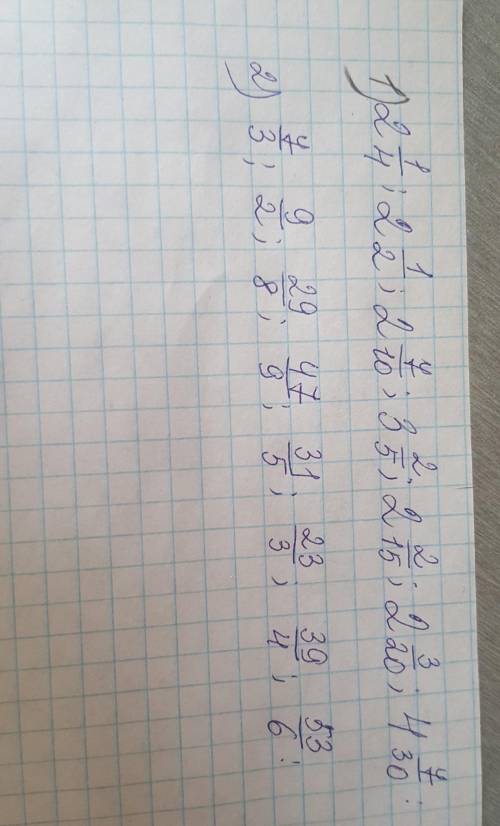 1) 2 1/4; 2 1/2; 2 7/10; 3 2/5; 2 2/15; 2 3/20; 4 7/30;
2) 7/3; 9/2; 29/8; 47/9; 31/5; 23/3; 39/4; 53/6;